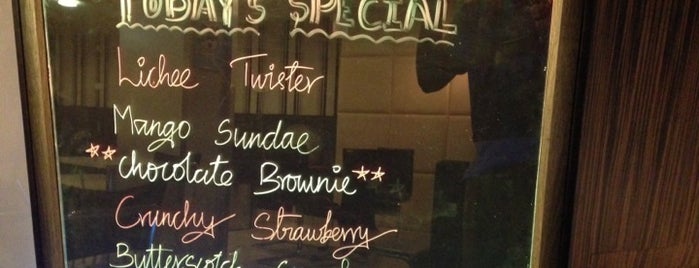 TODAY'S SPECIAL
Lichee Twister
Mango Sundae
**Chocolate Brownie**
Crunchy Strawberry
Butterscotch